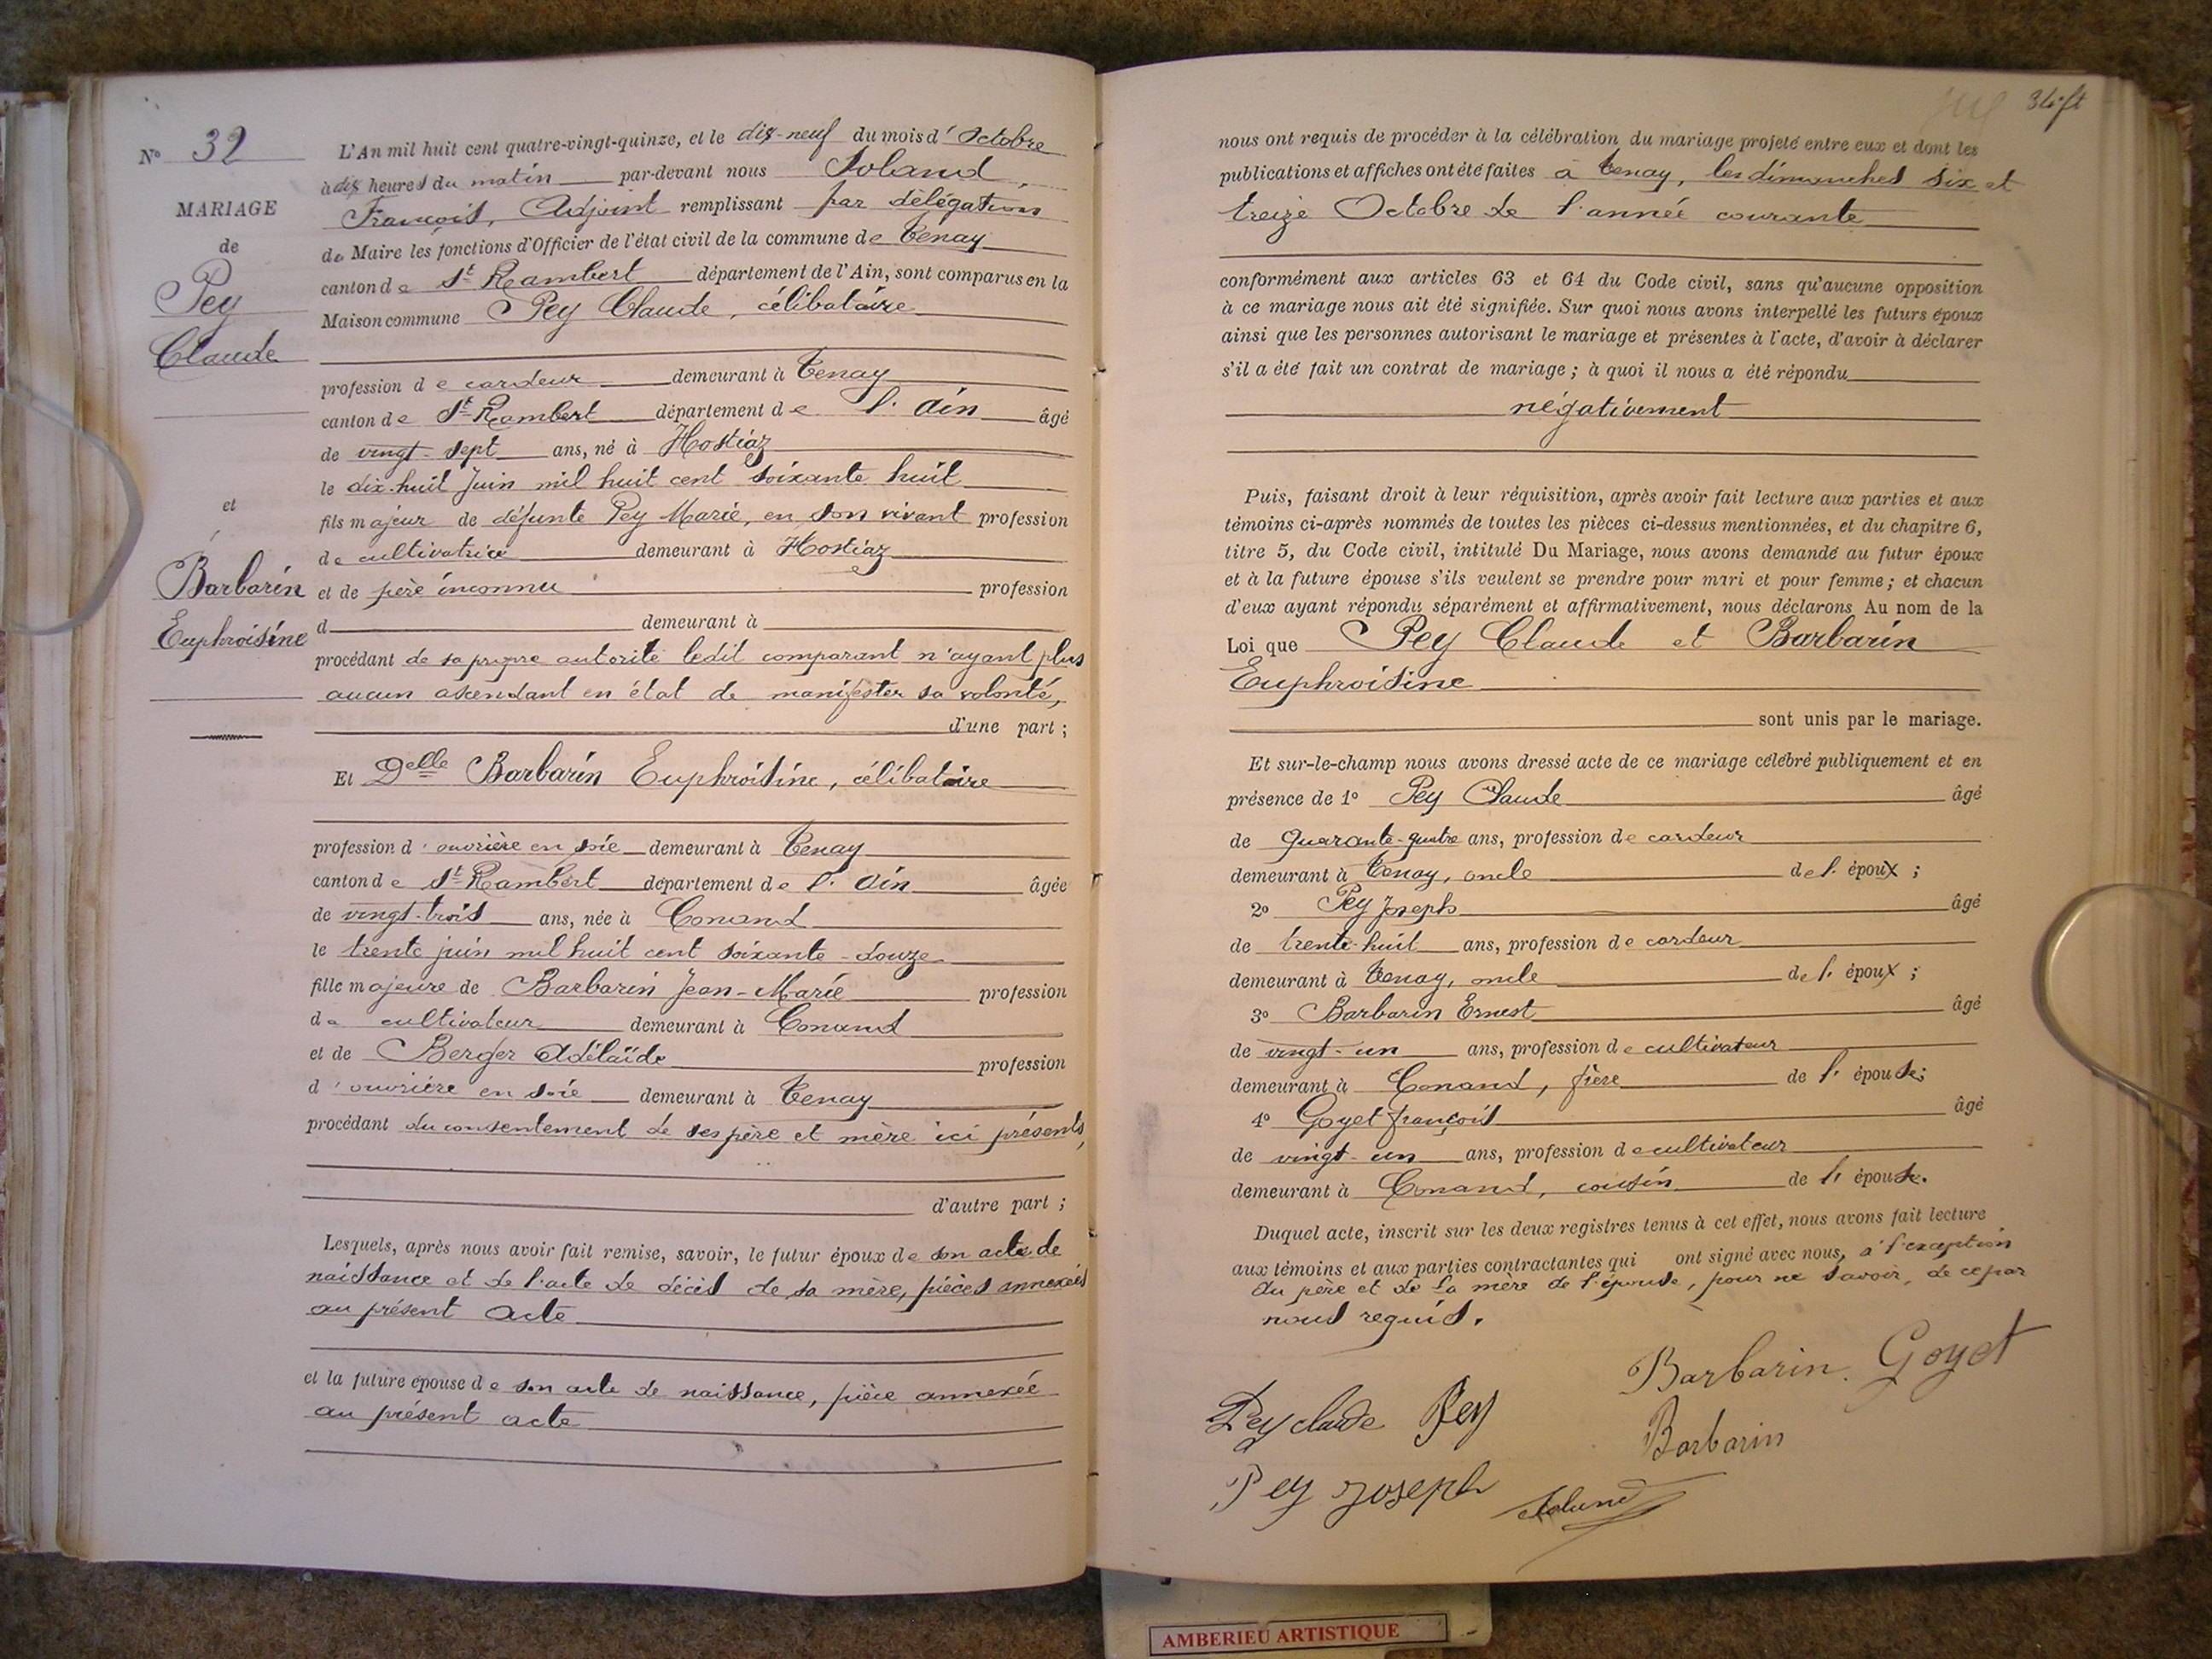 N° 32
MARIAGE
de
Pey
Claude
et
Barbarin
Euphroisine
L'An mil huit cent quatre-vingt-quinze, et le dix-neuf du mois d'Octobre
à dix heures du matin par-devant nous Soland,
François, Adjoint remplissant par délégation
du Maire les fonctions d'Officier de l'état civil de la commune de Tenay
canton de St Rambert département de l'Ain, sont comparus en la
Maison commune Pey Claude, célibataire
profession de cardeur demeurant à Tenay
canton de St Rambert département de l'Ain âgé
de vingt-sept ans, né à Hostiaz
le dix-huit Juin mil huit cent soixante huit
fils majeur de défunte Pey Marie, en son vivant profession
de cultivatrice demeurant à Hostiaz
et de père inconnu profession
d demeurant à
procédant de sa propre autorité ledit comparant n'ayant plus
aucun ascendant en état de manifester sa volonté,
d'une part ;
Et Delle Barbarin Euphroisine, célibataire
profession d'ouvrière en soie demeurant à Tenay
canton de St Rambert département de l'Ain âgée
de vingt-trois ans, née à Conand
le trente juin mil huit cent soixante-douze
fille majeure de Barbarin Jean-Marie profession
de cultivateur demeurant à Conand
et de Berger Adélaïde profession
d'ouvrière en soie demeurant à Tenay
procédant du consentement de ses père et mère ici présents,
d'autre part ;
Lesquels, après nous avoir fait remise, savoir, le futur époux de son acte de
naissance et de l'acte de décès de sa mère, pièces annexées
au présent acte
et la future épouse de son acte de naissance, pièce annexée
au présent acte
nous ont requis de procéder à la célébration du mariage projeté entre eux et dont les
publications et affiches ont été faites à Tenay, les dimanches six et
treize Octobre de l'année courante
conformément aux articles 63 et 64 du Code civil, sans qu'aucune opposition
à ce mariage nous ait été signifiée. Sur quoi nous avons interpellé les futurs époux
ainsi que les personnes autorisant le mariage et présentes à l'acte, d'avoir à déclarer
s'il a été fait un contrat de mariage ; à quoi il nous a été répondu
négativement
Puis, faisant droit à leur réquisition, après avoir fait lecture aux parties et aux
témoins ci-après nommés de toutes les pièces ci-dessus mentionnées, et du chapitre 6,
titre 5, du Code civil, intitulé Du Mariage, nous avons demandé au futur époux
et à la future épouse s'ils veulent se prendre pour mari et pour femme ; et chacun
d'eux ayant répondu séparément et affirmativement, nous déclarons Au nom de la
Loi que Pey Claude et Barbarin
Euphroisine
sont unis par le mariage.
Et sur-le-champ nous avons dressé acte de ce mariage célébré publiquement et en
présence de 1° Pey Claude âgé
de Quarante-quatre ans, profession de cardeur
demeurant à Tenay, oncle de l'époux ;
2° Pey Joseph âgé
de trente-huit ans, profession de cardeur
demeurant à Tenay, oncle de l'époux ;
3° Barbarin Ernest âgé
de vingt-un ans, profession de cultivateur
demeurant à Conand, frère de l'épouse ;
4° Goyet françois âgé
de vingt-un ans, profession de cultivateur
demeurant à Conand, cousin de l'épouse.
Duquel acte, inscrit sur les deux registres tenus à cet effet, nous avons fait lecture
aux témoins et aux parties contractantes qui ont signé avec nous, à l'exception
du père et de la mère de l'épouse, pour ne savoir, de ce par
nous requis.
Barbarin. Goyet
Pey claude Pey
Barbarin
Pey Joseph Soland
AMBERIEU ARTISTIQUE